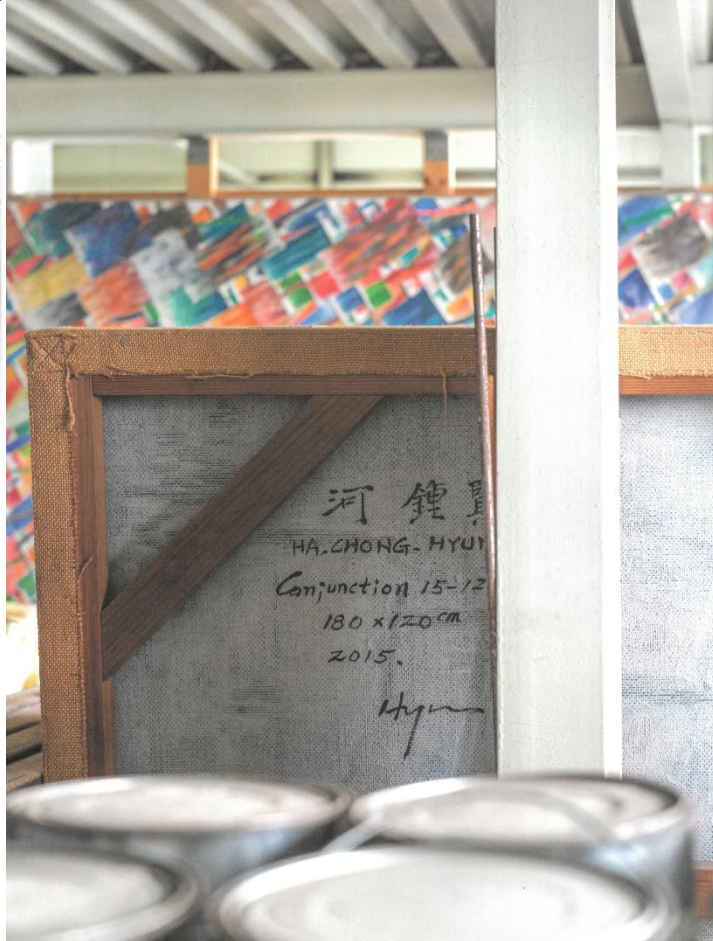 河 鍾
HA.CHONG-HYUN
Conjunction 15-12
180 x 120 cm
2015.
Hyun